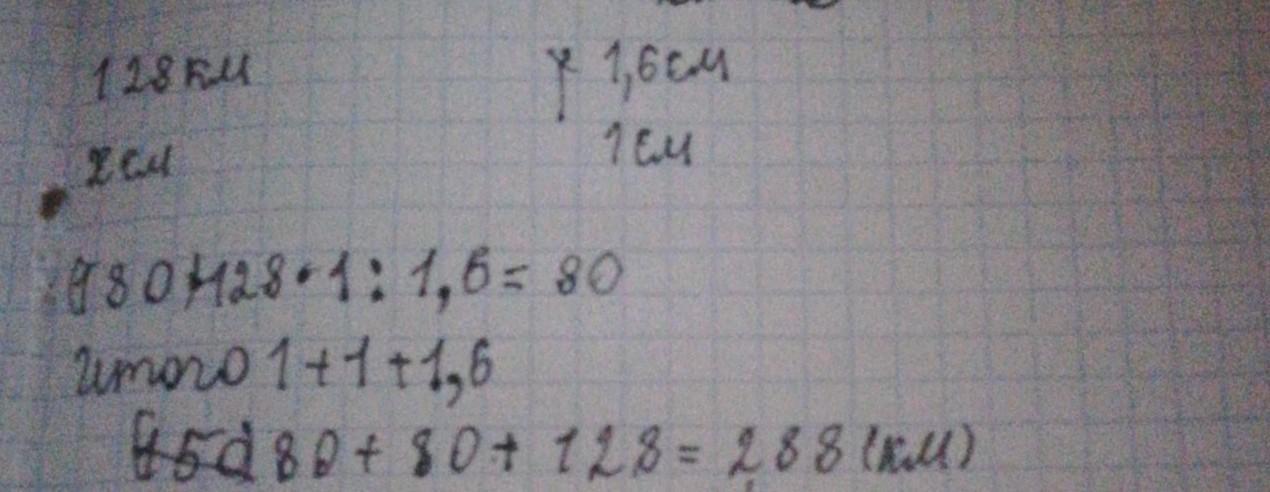 128 км 1,6 см
x см 1 см
128·1:1,6=80
итого 1+1+1,6
80+80+128=288(км)